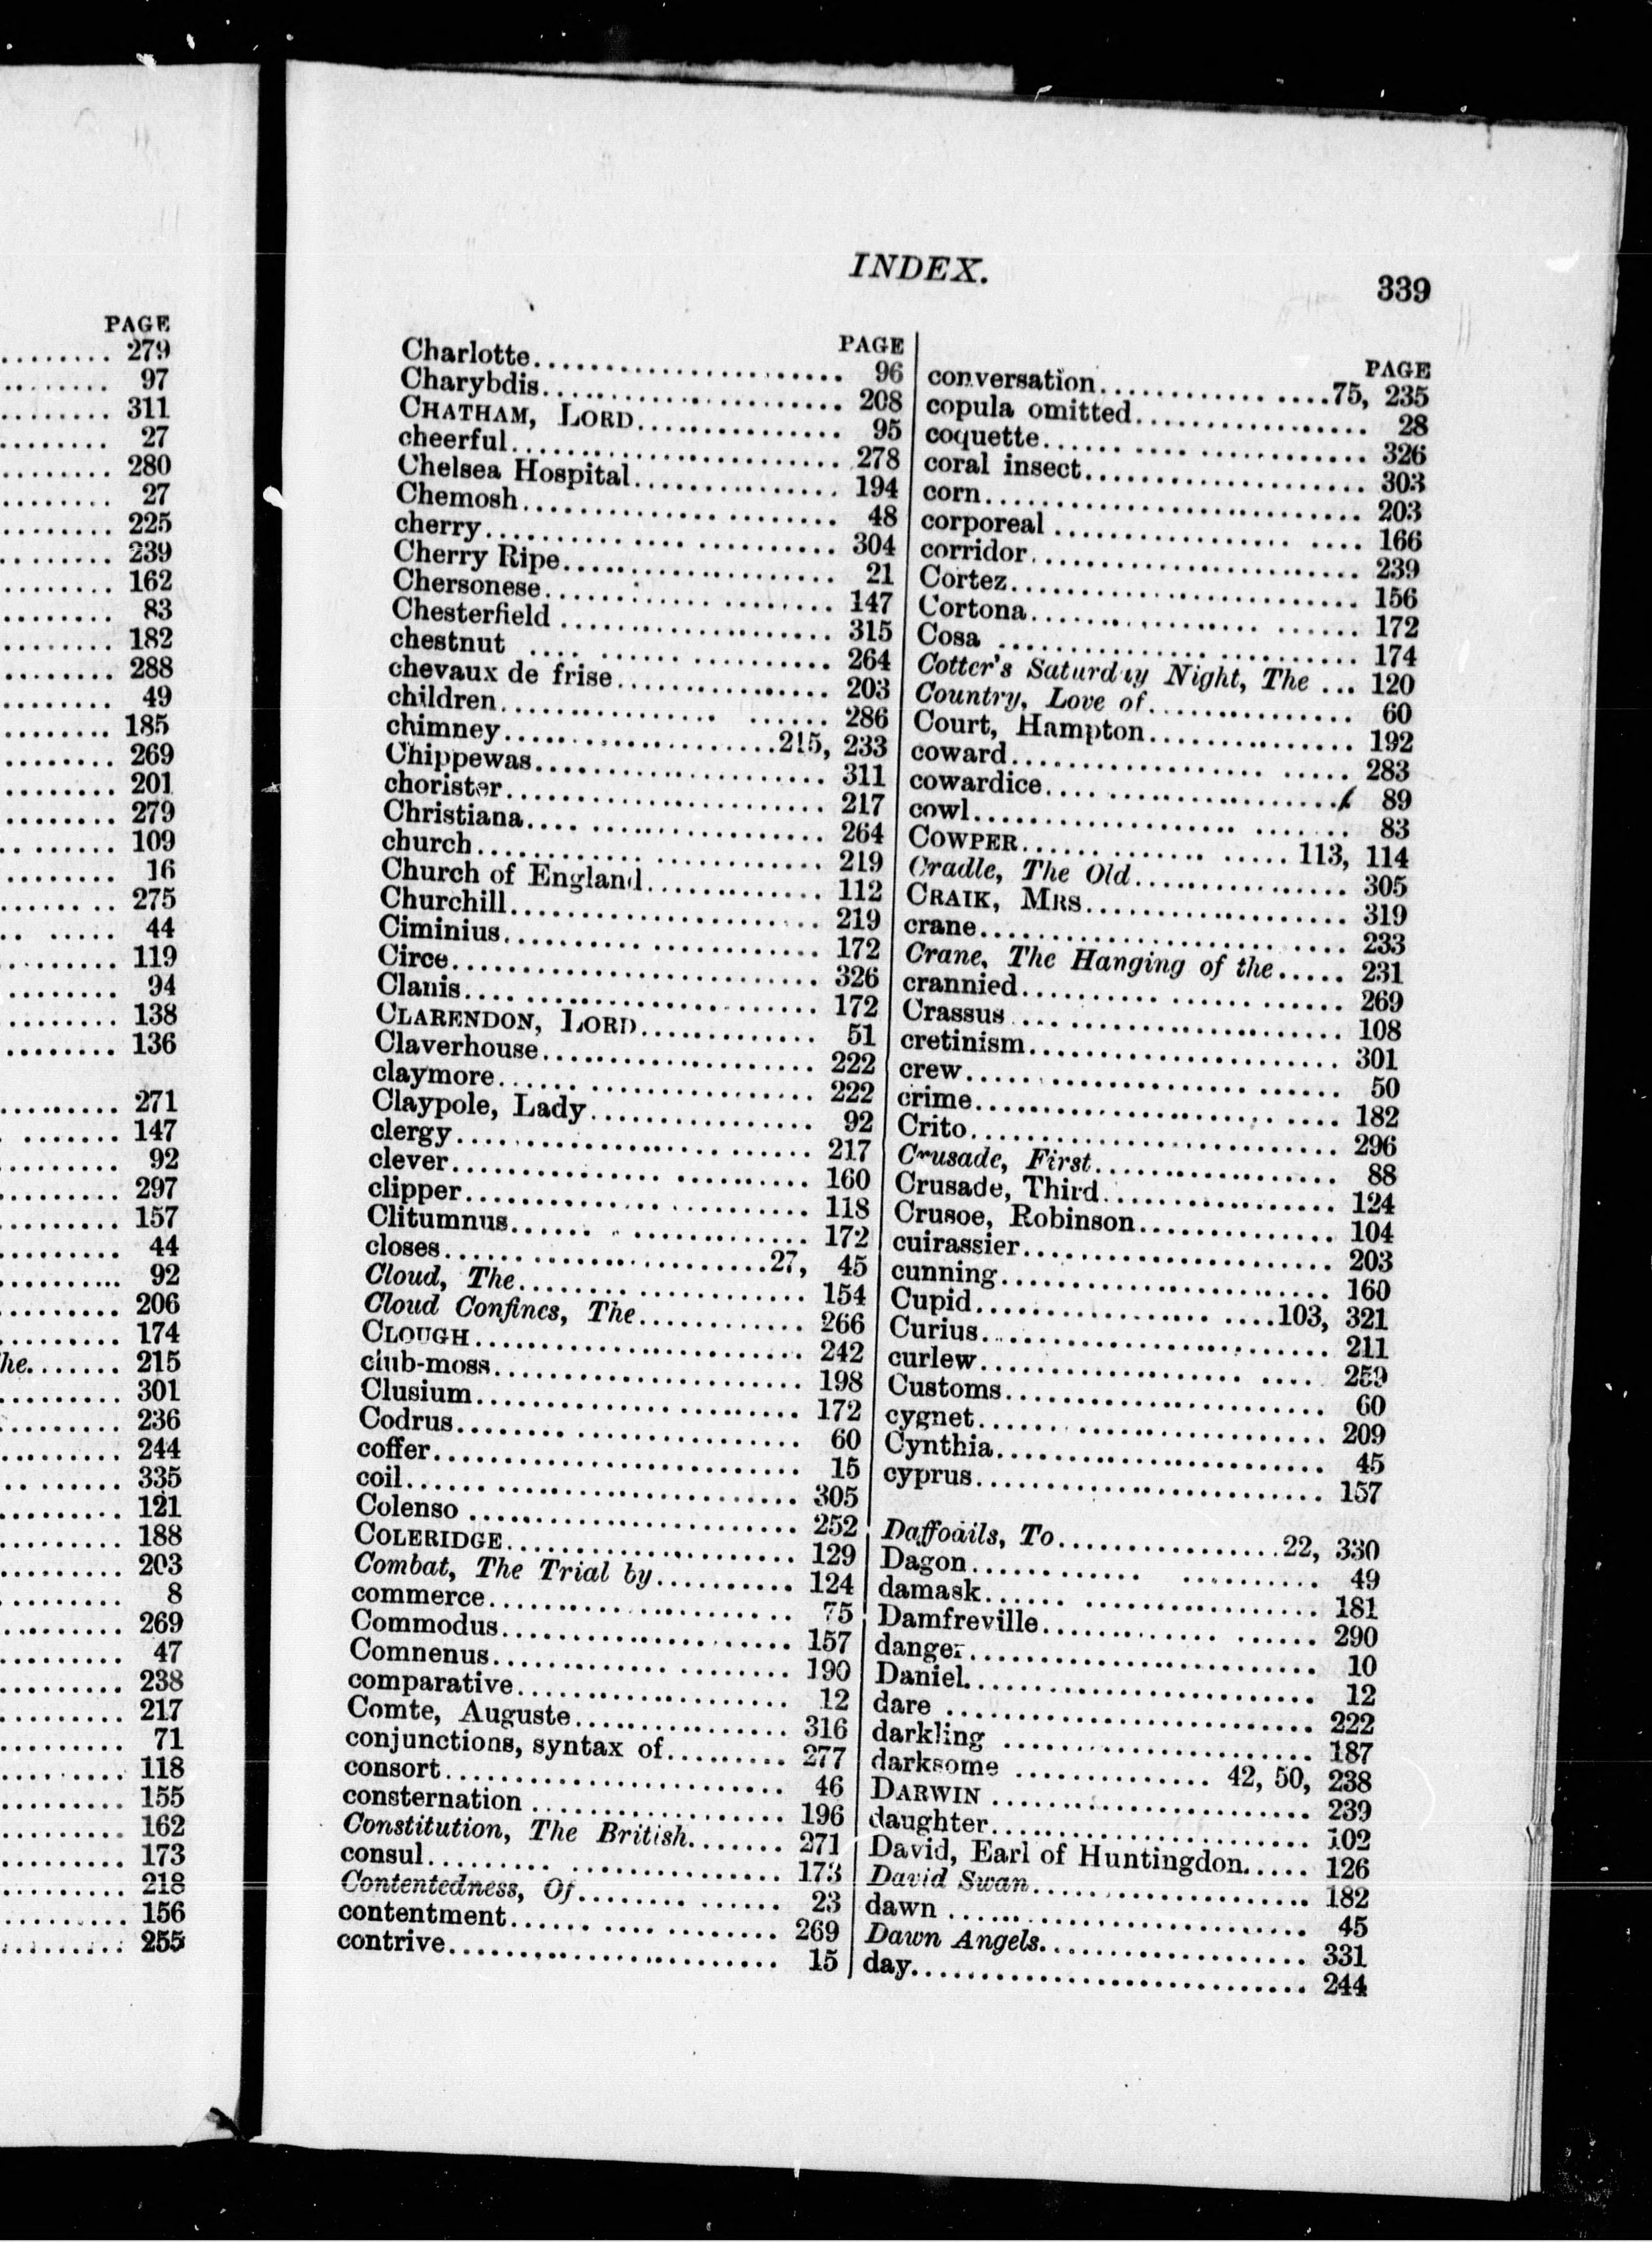 PAGE
........ 279
........ 97
........ 311
........ 27
........ 280
........ 27
........ 225
........ 239
........ 162
........ 83
........ 182
........ 288
........ 49
........ 185
........ 269
........ 201
........ 279
........ 109
........ 16
........ 275
........ 44
........ 119
........ 94
........ 138
........ 136
........ 271
........ 147
........ 92
........ 297
........ 157
........ 44
........ 92
........ 206
........ 174
he....... 215
........ 301
........ 236
........ 244
........ 335
........ 121
........ 188
........ 203
........ 8
........ 269
........ 47
........ 238
........ 217
........ 71
........ 118
........ 155
........ 162
........ 173
........ 218
........ 156
........ 255
INDEX.
339
PAGE
Charlotte........ 96
Charybdis........ 208
CHATHAM, LORD........ 95
cheerful........ 278
Chelsea Hospital........ 194
Chemosh........ 48
cherry........ 304
Cherry Ripe........ 21
Chersonese........ 147
Chesterfield ........ 315
chestnut ........ 264
chevaux de frise........ 203
children........ 286
chimney........215, 233
Chippewas........ 311
chorister........ 217
Christiana........ 264
church........ 219
Church of England........ 112
Churchill........ 219
Ciminius........ 172
Circe........ 326
Clanis........ 172
CLARENDON, LORD........ 51
Claverhouse........ 222
claymore........ 222
Claypole, Lady........ 92
clergy........ 217
clever........ 160
clipper........ 118
Clitumnus........ 172
closes........27, 45
Cloud, The........ 154
Cloud Confines, The........ 266
CLOUGH........ 242
club-moss........ 198
Clusium........ 172
Codrus........ 60
coffer........ 15
coil........ 305
Colenso ........ 252
COLERIDGE........ 129
Combat, The Trial by........ 124
commerce........ 75
Commodus........ 157
Comnenus........ 190
comparative........ 12
Comte, Auguste........ 316
conjunctions, syntax of........ 277
consort........ 46
consternation ........ 196
Constitution, The British........ 271
consul........ 173
Contentedness, Of........ 23
contentment........ 269
contrive........ 15
PAGE
conversation........75, 235
copula omitted........ 28
coquette........ 326
coral insect........ 303
corn........ 203
corporeal ........ 166
corridor........ 239
Cortez........ 156
Cortona........ 172
Cosa ........ 174
Cotter's Saturday Night, The ... 120
Country, Love of........ 60
Court, Hampton........ 192
coward........ 283
cowardice........ 89
cowl........ 83
COWPER........ 113, 114
Cradle, The Old........ 305
CRAIK, MRS........ 319
crane........ 233
Crane, The Hanging of the..... 231
crannied........ 269
Crassus ........ 108
cretinism........ 301
crew........ 50
crime........ 182
Crito........ 296
Crusade, First........ 88
Crusade, Third........ 124
Crusoe, Robinson........ 104
cuirassier........ 203
cunning........ 160
Cupid........103, 321
Curius........ 211
curlew........ 259
Customs........ 60
cygnet........ 209
Cynthia........ 45
cyprus........ 157
Daffodils, To........22, 330
Dagon........ 49
damask........ 181
Damfreville........ 290
danger........ 10
Daniel........ 12
dare ........ 222
darkling ........ 187
darksome ........ 42, 50, 238
DARWIN ........ 239
daughter........ 102
David, Earl of Huntingdon..... 126
David Swan........ 182
dawn ........ 45
Dawn Angels........ 331
day........ 244